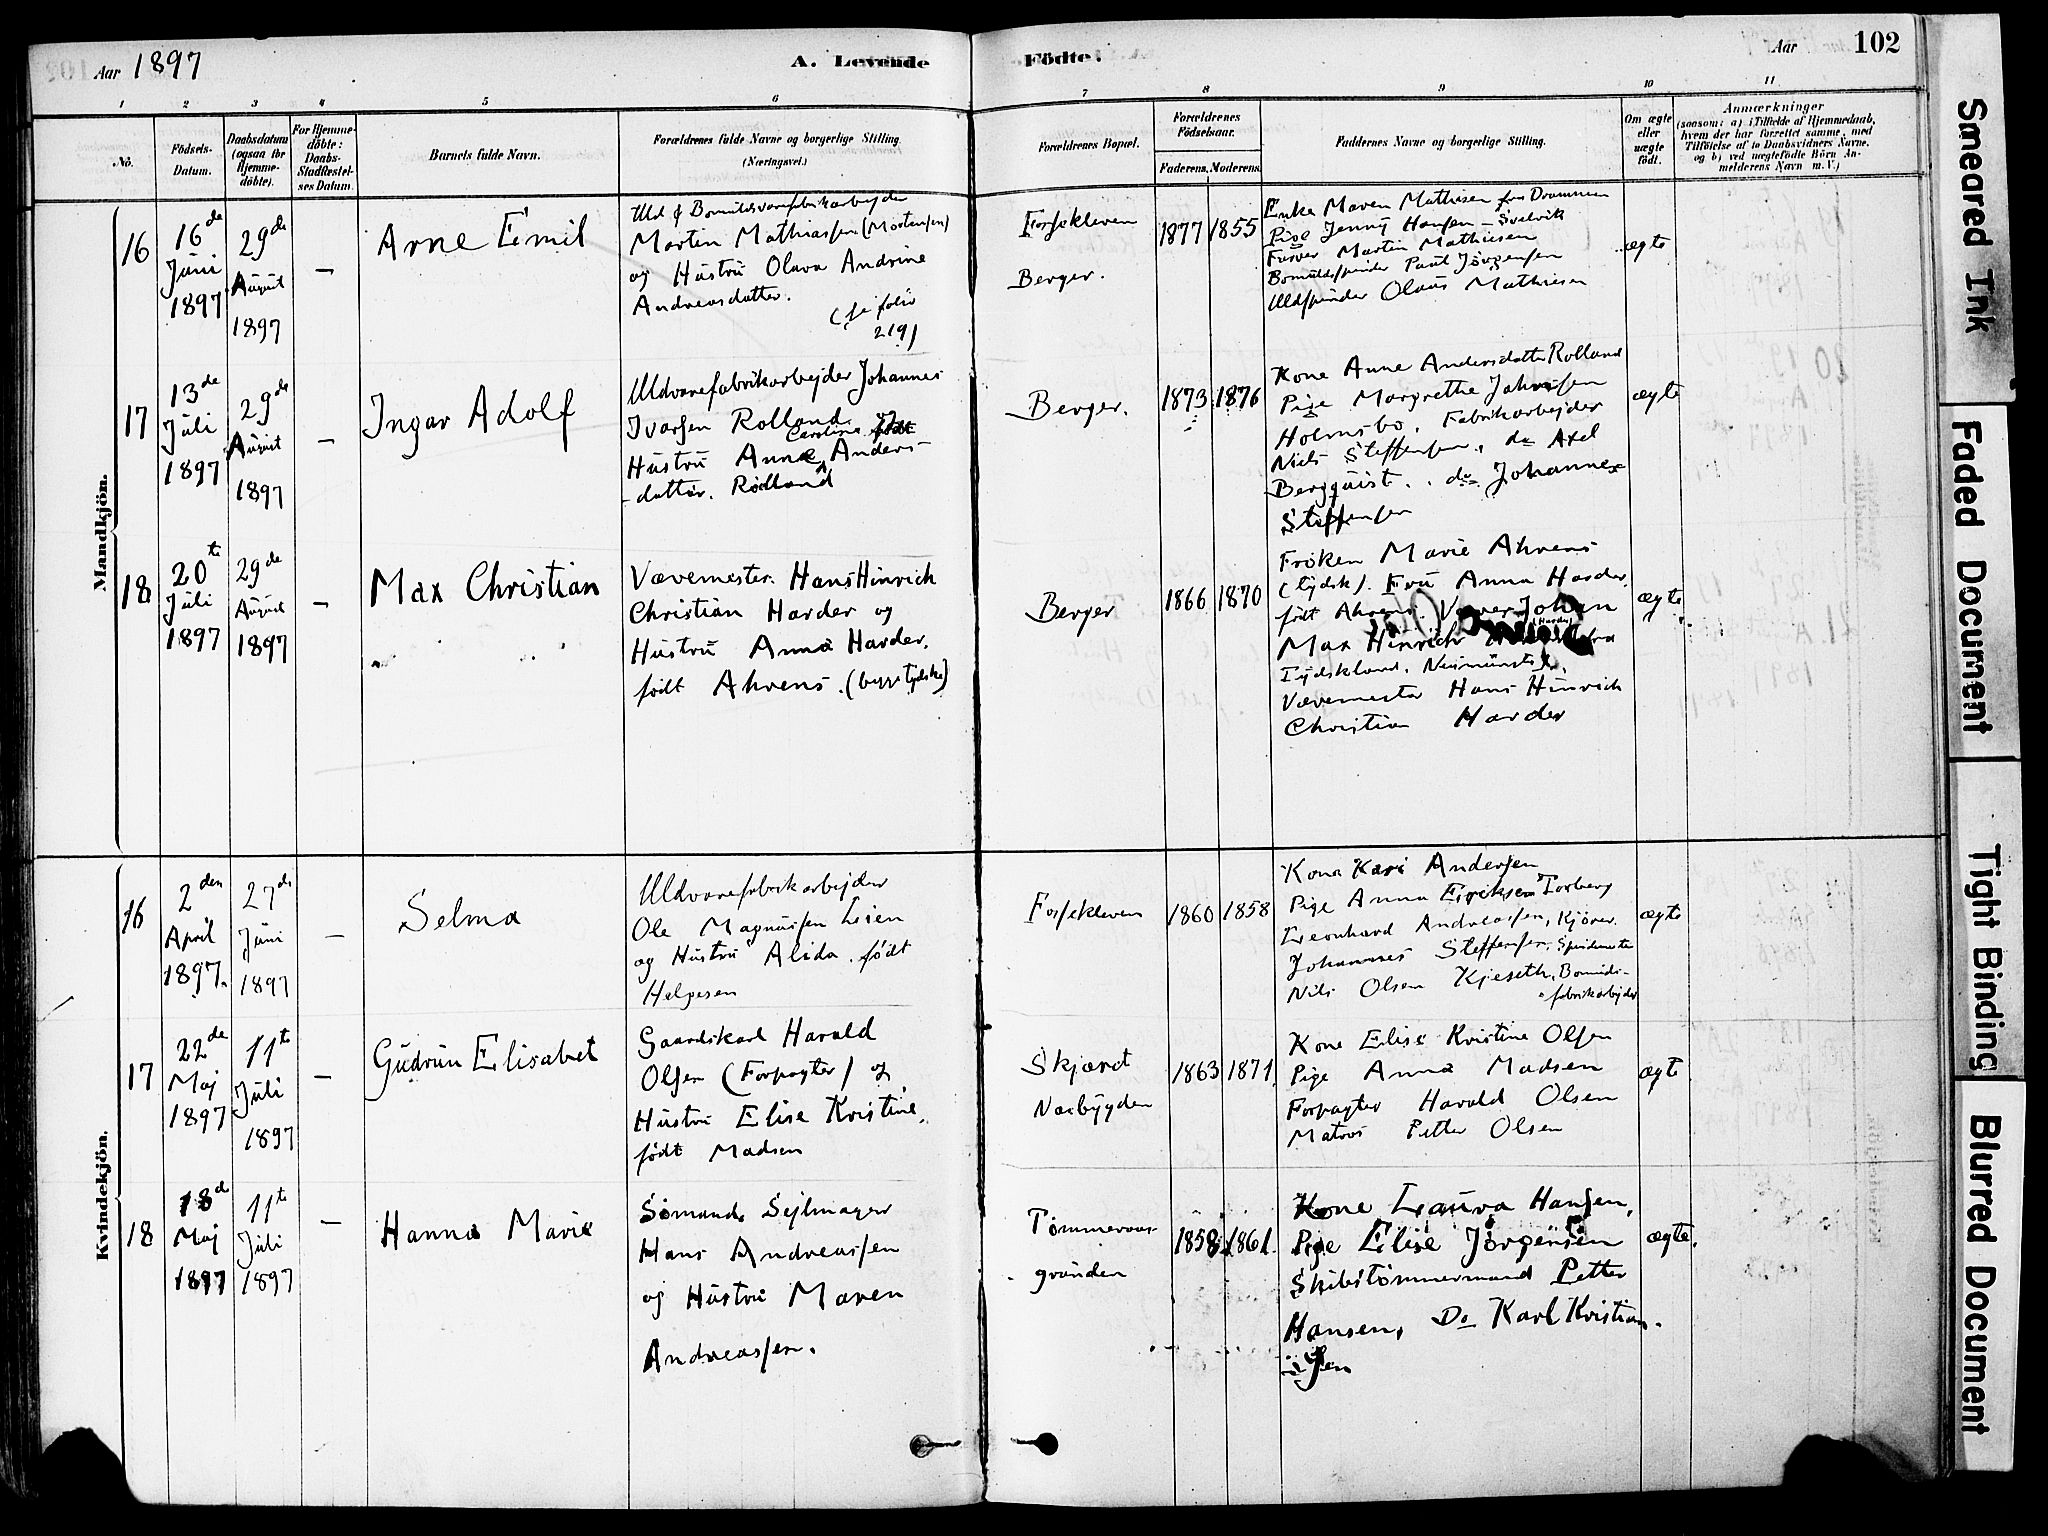 Aar 1897
A. Levende
Födte.
Aar
102
1
2
3
4
5
6
7
8
9
10
11
No.
Födsels-
Datum.
Daabsdatum
(ogsaa for
Hjemme-
döbte).
For Hjemme-
döbte:
Daabs-
Stadfæstel-
ses Datum.
Barnets fulde Navn.
Forældrenes fulde Navne og borgerlige Stilling.
(Næringsvei.)
Forældrenes Bopæl.
Forældrenes
Födselsaar.
Faderens.
Moderens.
Faddernes Navne og borgerlige Stilling.
Om ægte
eller
uægte
födt.
Anmærkninger
(saasom: a) i Tilfælde af Hjemmedaab,
hvem der har forrettet samme, med
Tilföielse af to Daabsvidners Navne.
og b) ved uægtefödte Börn An-
melderens Navn m. V.)
Mandkjön.
16
16de
Juni
1897
29de
August
1897
—
Arne Emil
Uld & Bomuldsvarefabrikarbejder
Martin Mathiassen (Mortensen)
og Hustru Olava Andrine
Andreasdatter.
(se folio
219)
Forsekleven
Berger.
1877
1855
Enke Maren Mathisen fra Drammen
Pige Jenny Hansen - Svelvik
Farver Martin Mathiesen
Bomuldspinder Paul Jørgensen
Uldspinder Olaus Mathiesen
ægte
17
13de
Juli
1897
29de
August
1897
—
Ingar Adolf
Uldvarefabrikarbejder Johannes
Ivarsen Rolland
Caroline født
Hustru Anna Anders
-datter. Rolland
Berger.
1873
1876
Kone Anne Andersdatter Rolland
Pige Margrethe Johnsen
Holmsbo. Fabrikarbejder
Niels Steffensen, do Axel
Bergquist. do Johannes
Steffensen
ægte
18
20te
Juli
1897
29de
August
1897
—
Max Christian
Vævemester Hans Hinrich
Christian Harder og
Hustru Anna Harder.
født Ahrens. (begge tydske)
Berger
1866
1870
Frøken Marie Ahrens
(tydsk). Fru Anna Harder.
født Ahrens. Væver Johan
(Harder)
Max Hinrich fra
Tydskland. Neumünster.
Vævemester Hans Hinrich
Christian Harder
ægte
Kvindekjön.
16
2den
April
1897.
27de
Juni
1897
—
Selma
Uldvarefabrikarbejder
Ole Magnussen Lien
og Hustru Alida født
Helgesen
Forsekleven
1860
1858
Kone Kari Andersen
Pige Anna Eriksen Torberg
Leonhard Andreassen, Kjører.
Johannes Steffensen. Spindemester
Nils Olsen Kjeseth, Bomulds-
fabrikarbejder
ægte
17
22de
Maj
1897
11te
Juli
1897
—
Gudrun Elisabet
Gaardskarl Harald
Olsen (Forpagter) og
Hustru Elise Kristine,
født Madsen
Skjæret
Nesbygden
1863
1871
Kone Elise Kristine Olsen
Pige Anna Madsen
Forpagter Harald Olsen
Matros Petter Olsen
ægte
18
18de
Maj
1897
11te
Juli
1897
—
Hanna Marie
Sømand, Sejlmager
Hans Andreassen
og Hustru Maren
Andreassen.
Tømmeraas
grunden
1858
1861.
Kone Laura Hansen,
Pige Elise Jørgensen
Skibstømmermand Petter
Hansen, Do Karl Kristian-
sen
ægte.
Smeared Ink
Faded Document
Tight Binding
Blurred Document